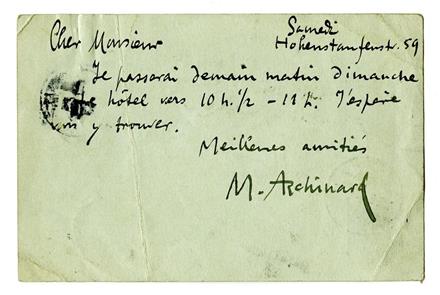 Samedi
Cher Monsieur Hohenstaufenstr. 59
Je passerai demain matin Dimanche
hôtel vers 10 h. 1/2 – 11 h. J'espère
y trouver.
Meilleures amitiés
M. Archinard